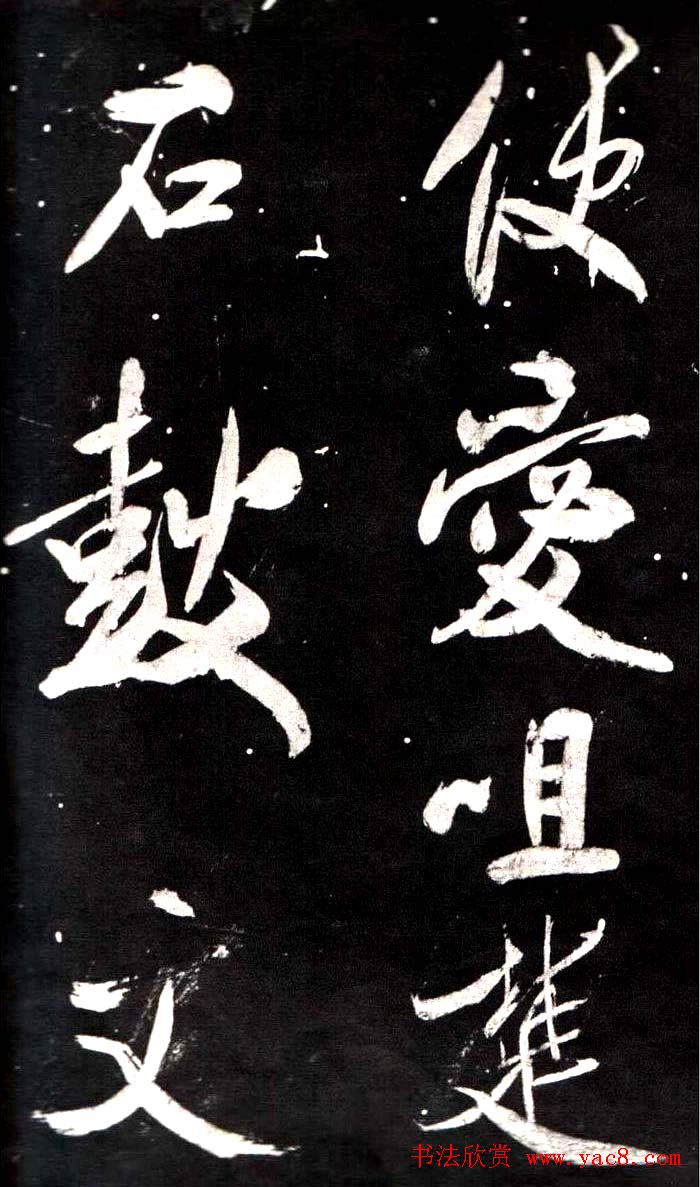 便愛咀楚
石鼓文
书法欣赏 www.yac8.com